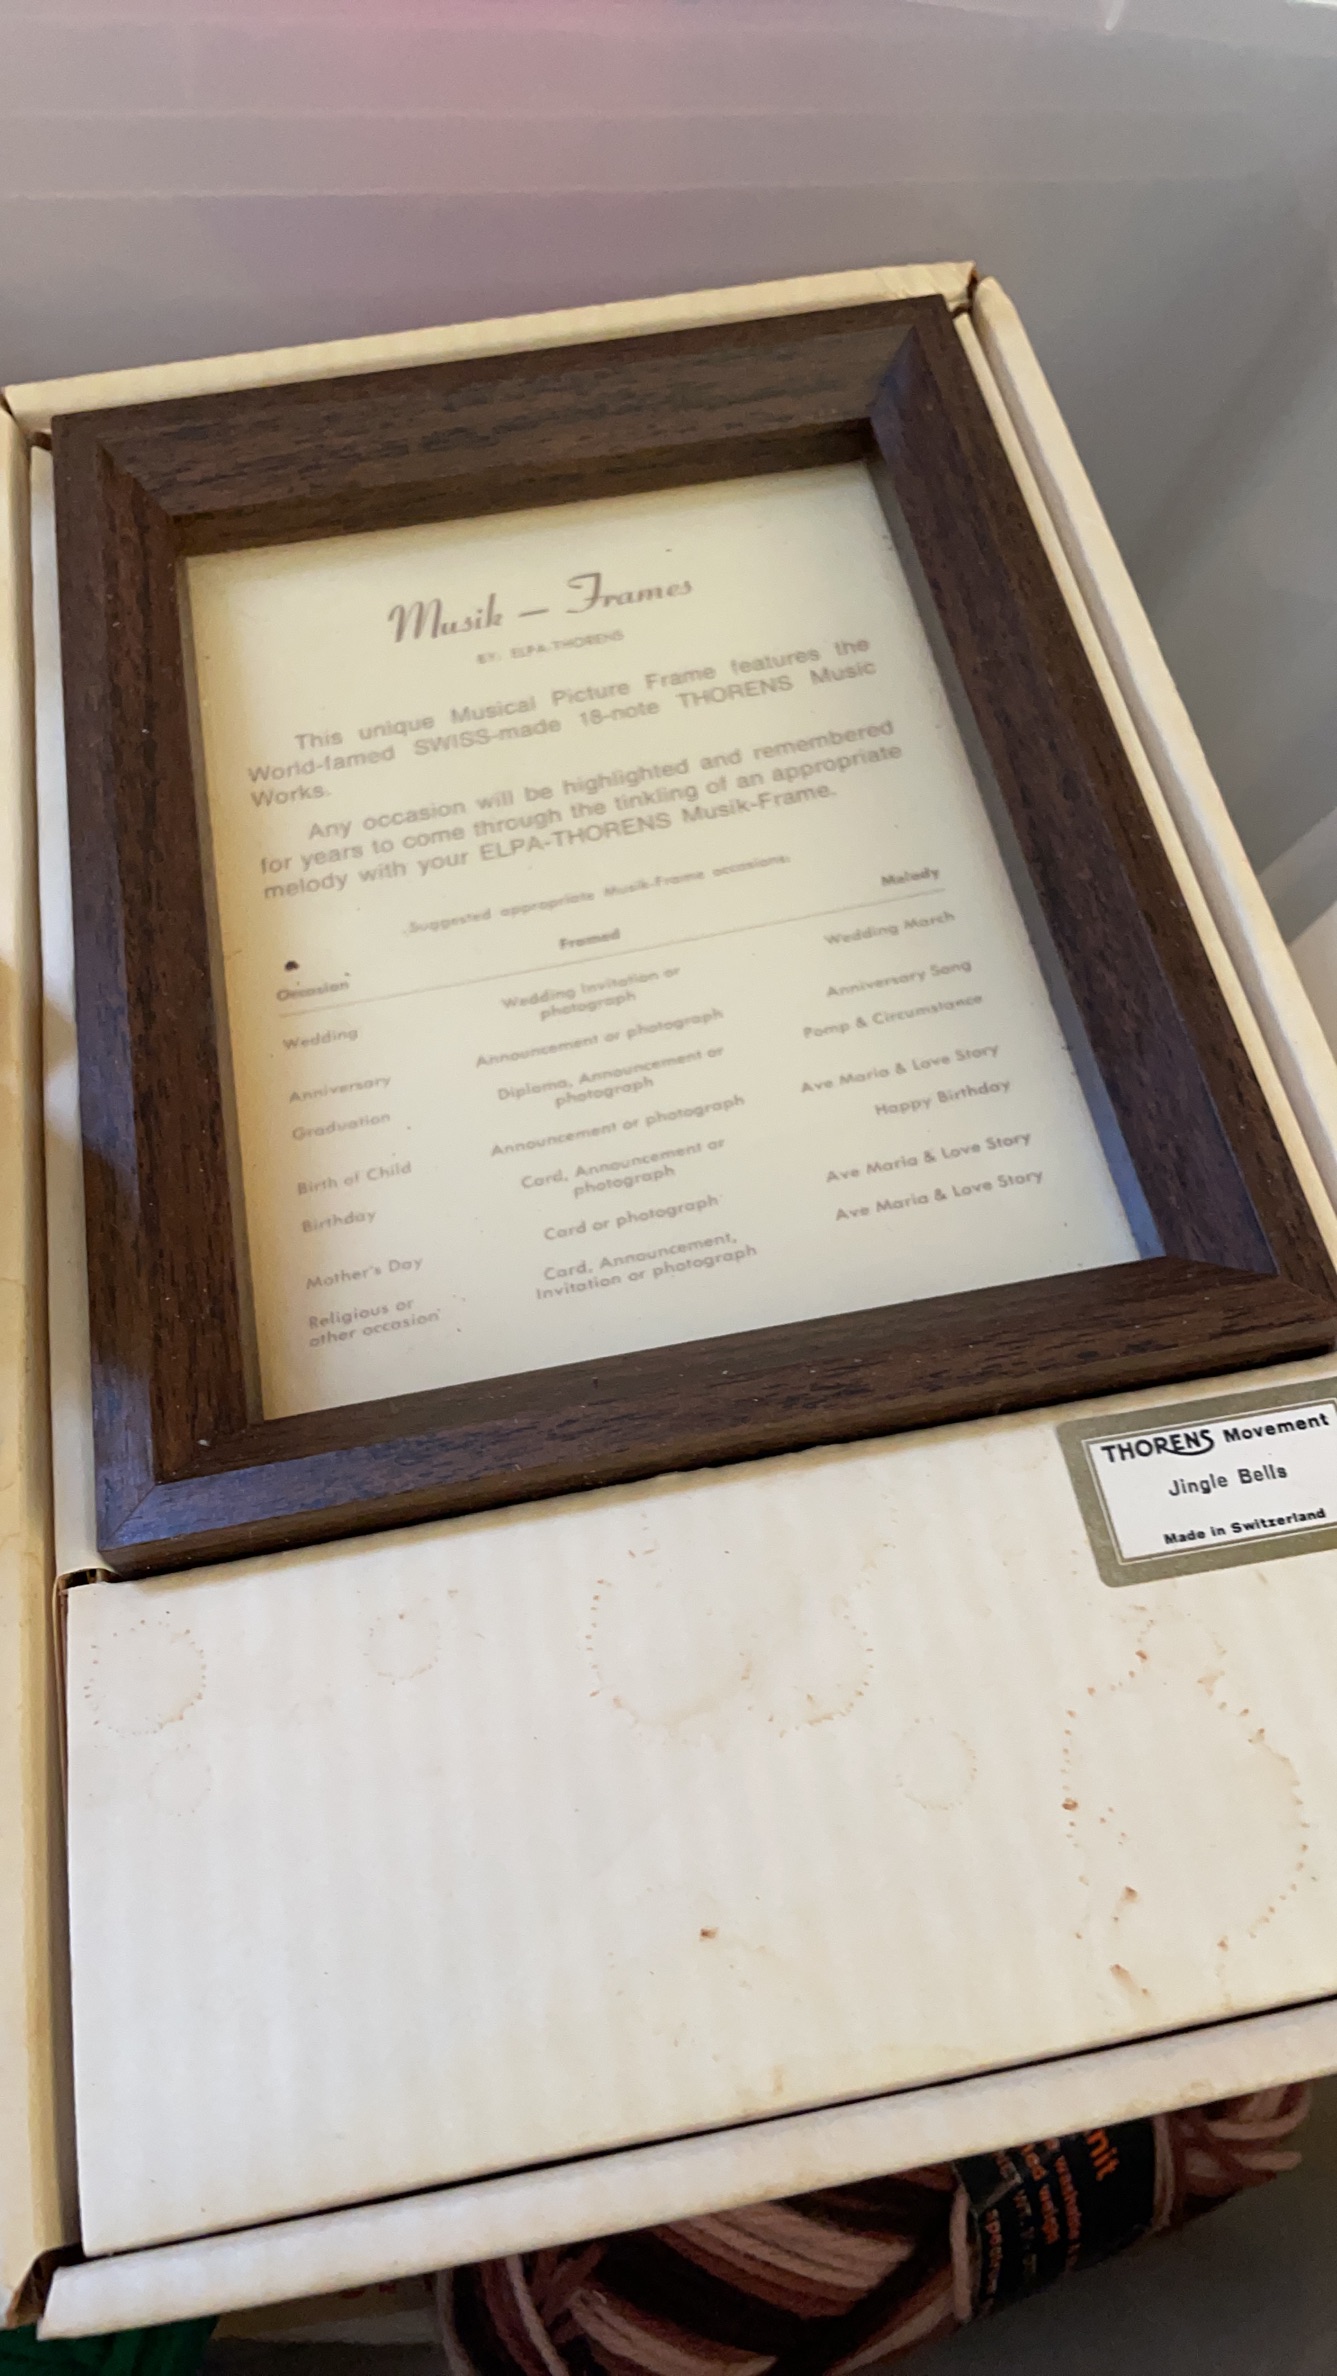 Musik — Frames
BY: ELPA-THORENS
This unique Musical Picture Frame features the
World-famed SWISS-made 18-note THORENS Music
Works.
Any occasion will be highlighted and remembered
for years to come through the tinkling of an appropriate
melody with your ELPA-THORENS Musik-Frame.
Suggested appropriate Musik-Frame occasions:
Occasion Framed Melody
Wedding Wedding Invitation or Wedding March
photograph
Anniversary Announcement or photograph Anniversary Song
Graduation Diploma, Announcement or Pomp & Circumstance
photograph
Birth of Child Announcement or photograph Ave Maria & Love Story
Birthday Card, Announcement or Happy Birthday
photograph
Mother's Day Card or photograph Ave Maria & Love Story
Religious or Card, Announcement, Ave Maria & Love Story
other occasion Invitation or photograph
THORENS Movement
Jingle Bells
Made in Switzerland
nit